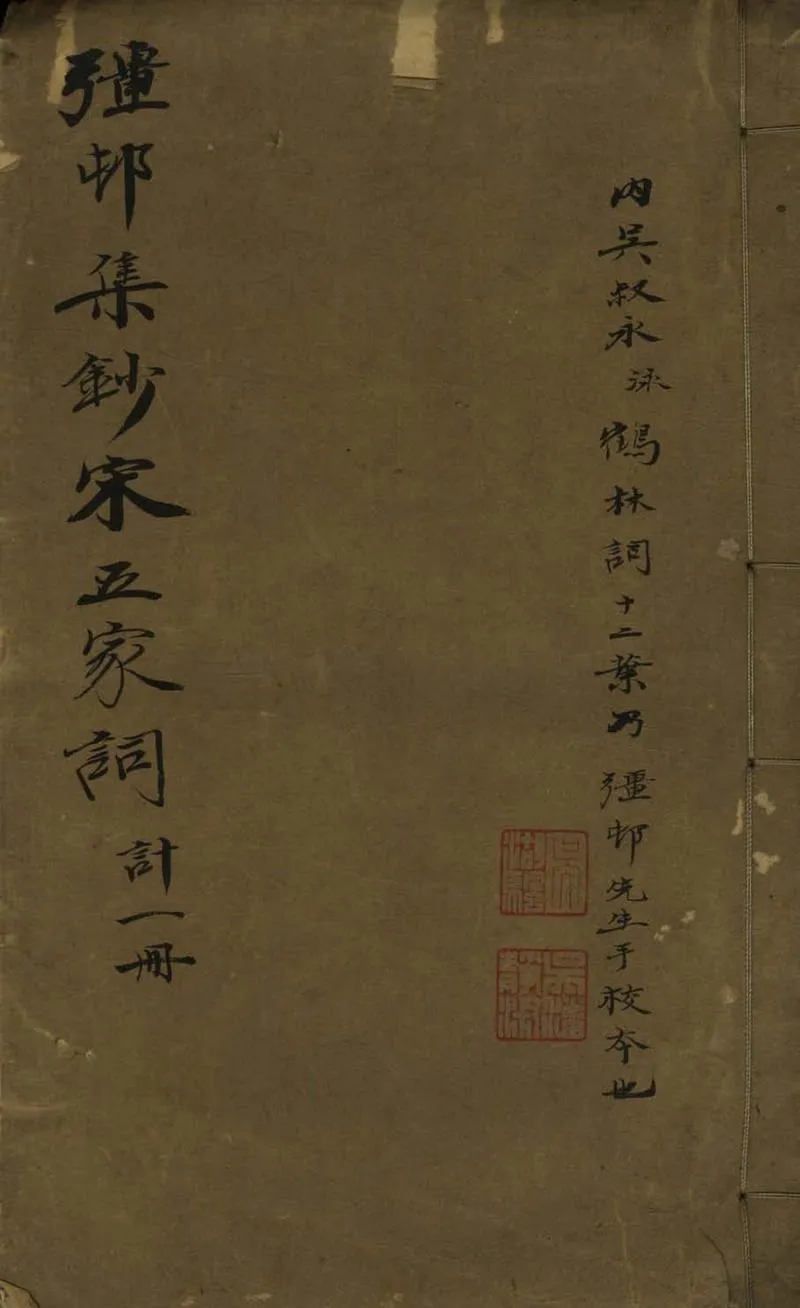 内吳叔永泳鶴林詞十二葉乃彊邨先生手校本也
彊邨集鈔宋五家詞計一冊